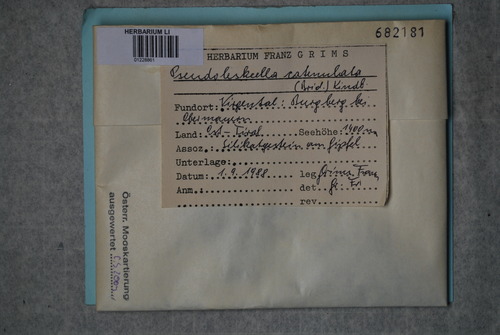 682181
HERBARIUM LI
01226861
HERBARIUM FRANZ GRIMS
Pseudoleskeella catenulata
(Brid.) Kindb.
Fundort: Virgental: Burgberg bei
Obermauern
Land: Ost-Tirol Seehöhe: 1400 m
Assoz.: Silikatgestein am Gipfel
Unterlage:
Datum: 1.9.1988 leg. Grims Franz
Anm.: det. Gr. Fr.
rev.
Österr. Mooskartierung
ausgewertet